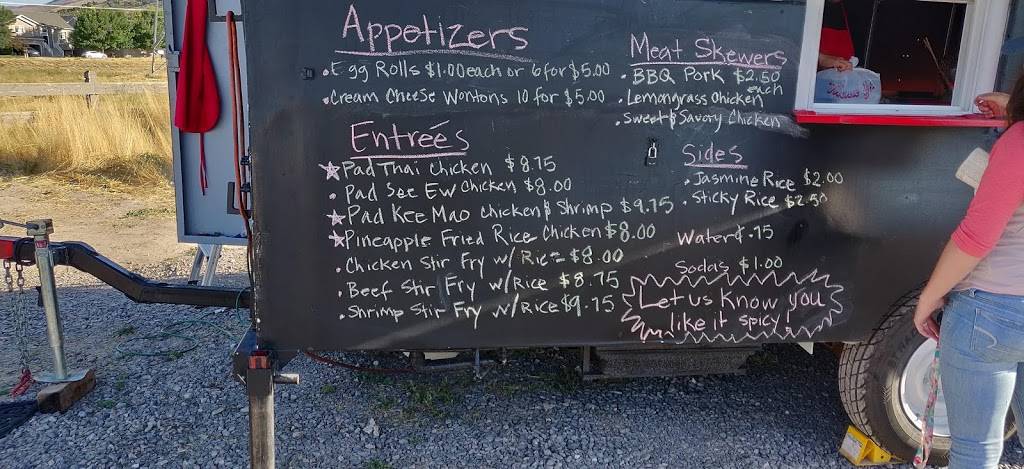 Appetizers
Egg Rolls $1.00 each or 6 for $5.00
Cream Cheese Wontons 10 for $5.00
Entreés
Pad Thai Chicken $8.75
Pad See Ew Chicken $8.00
Pad Kee Mao Chicken & Shrimp $9.75
Pineapple Fried Rice Chicken $8.00
Chicken Stir Fry w/ Rice $8.00
Beef Stir Fry w/Rice $8.75
Shrimp Stir Fry w/Rice $9.75
Meat Skewers
BBQ Pork $2.50
each
Lemongrass Chicken
Sweet & Savory Chicken
Sides
Jasmine Rice $2.00
Sticky Rice $2.50
Water ¢.75
Sodas $1.00
Let us know you
like it spicy!